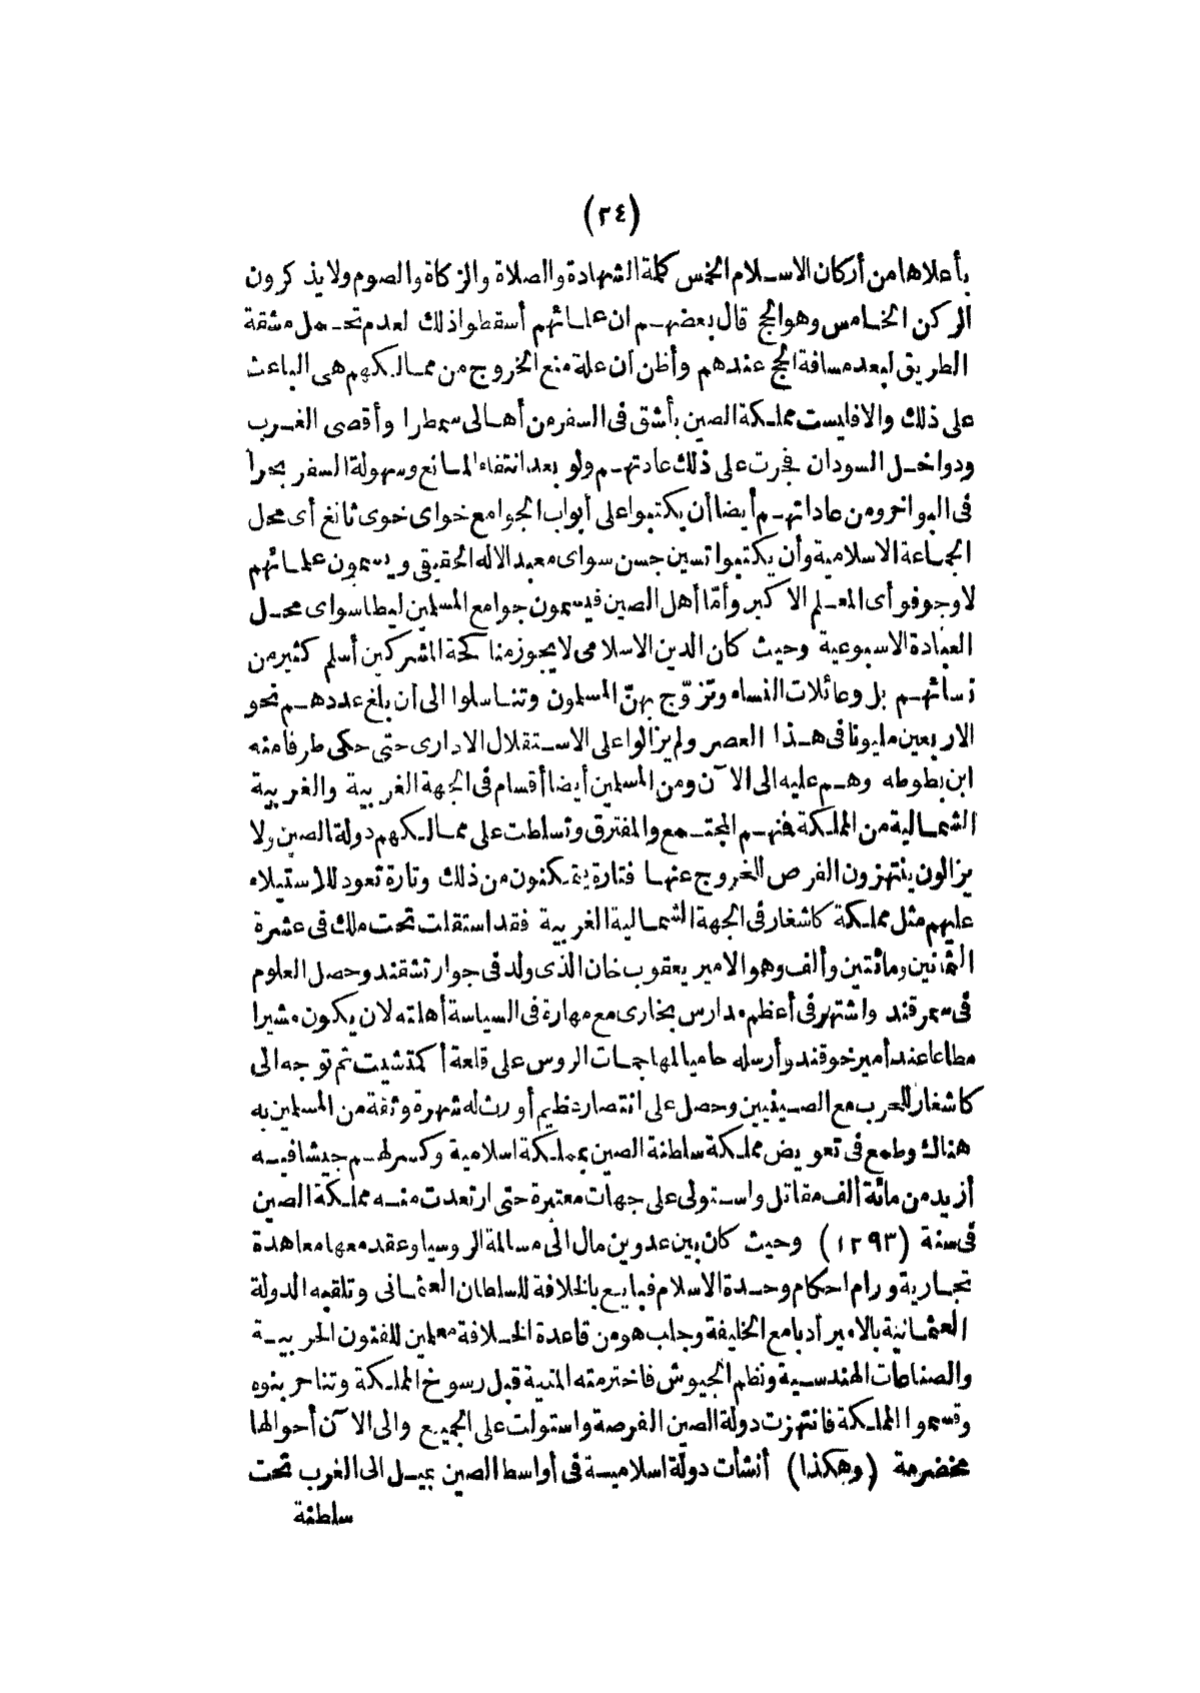 (٢٤)
بأعلاها من أركان الاسلام الخمس كلمة الشهادة والصلاة والزكاة والصوم ولا يذكرون
الركن الخامس وهو الحج قال بعضهم ان علمائهم أسقطوا ذلك لعدم تحمل مشقة
الطريق لبعد مسافة الحج عندهم وأظن أن علة منع الخروج من ممالكهم هى الباعث
على ذلك والا فليست مملكة الصين بأشق فى السفر من أهالى سمطرا وأقصى الغرب
ودواخل السودان فجرت على ذلك عادتهم ولو بعد انتفاء المانع وسهولة السفر بحرا
فى البواخر ومن عاداتهم أيضا أن يكتبوا على أبواب الجوامع خواى خوى ثانغ أى محل
الجماعة الاسلامية وأن يكتبوا تسين جسن سواى معبد الاله الحقيقى ويسمون علمائهم
لاوجوفو أى المعلم الاكبر وأمّا أهل الصين فيسمون جوامع المسلمين ليطاسواى محل
العبادة الاسبوعية وحيث كان الدين الاسلامى لا يجوز مناكحة المشركين أسلم كثير من
نسائهم بل وعائلات النساء وتزوّج بهنّ المسلمون وتناسلوا الى أن بلغ عددهم نحو
الاربعين مليونا فى هذا العصر ولم يزالوا على الاستقلال الادارى حتى حكى طرفا منه
ابن بطوطه وهم عليه الى الآن ومن المسلمين أيضا أقسام فى الجهة الغربية والغربية
الشمالية من المملكة فمنهم المجتمع والمفترق وتسلطت على ممالكهم دولة الصين ولا
يزالون ينتهزون الفرص للخروج عنها فتارة يتمكنون من ذلك وتارة تعود للاستيلاء
عليهم مثل مملكة كاشغار فى الجهة الشمالية الغربية فقد استقلت تحت ملك فى عشرة
الثمانين ومائتين وألف وهو الامير يعقوب خان الذى ولد فى جوار تشقند وحصل العلوم
فى سمرقند واشتهر فى أعظم مدارس بخارى مع مهارة فى السياسة أهلته لان يكون مشيرا
مطاعا عند أمير خوقند وأرسله حاميا لمهاجمات الروس على قلعة أكمتشيت ثم توجه الى
كاشغار للحرب مع الصينيين وحصل على انتصار عظيم أورث له شهرة وثقة من المسلمين به
هناك وطمع فى تعويض مملكة سلطنة الصين بمملكة اسلامية وكسر لهم جيشا فيه
أزيد من مائة ألف مقاتل واستولى على جهات معتبرة حتى ارتعدت منه مملكة الصين
فى سنة (١٢٩٣) وحيث كان بين عدوين مال الى مسالمة الروسيا وعقد معها معاهدة
تجارية ورام احكام وحدة الاسلام فبايع بالخلافة للسلطان العثمانى وتلقبه الدولة
العثمانية بالامير أدبا مع الخليفة وجلب هو من قاعدة الخلافة معلمين للفنون الحربية
والصناعات الهندسية ونظم الجيوش فاخترمته المنية قبل رسوخ المملكة وتناحر بنوه
وقسموا المملكة فانتهزت دولة الصين الفرصة واستولت على الجميع والى الآن أحوالها
مخضرمة (وهكذا) أنشأت دولة اسلامية فى أواسط الصين بميل الى الغرب تحت
سلطنة